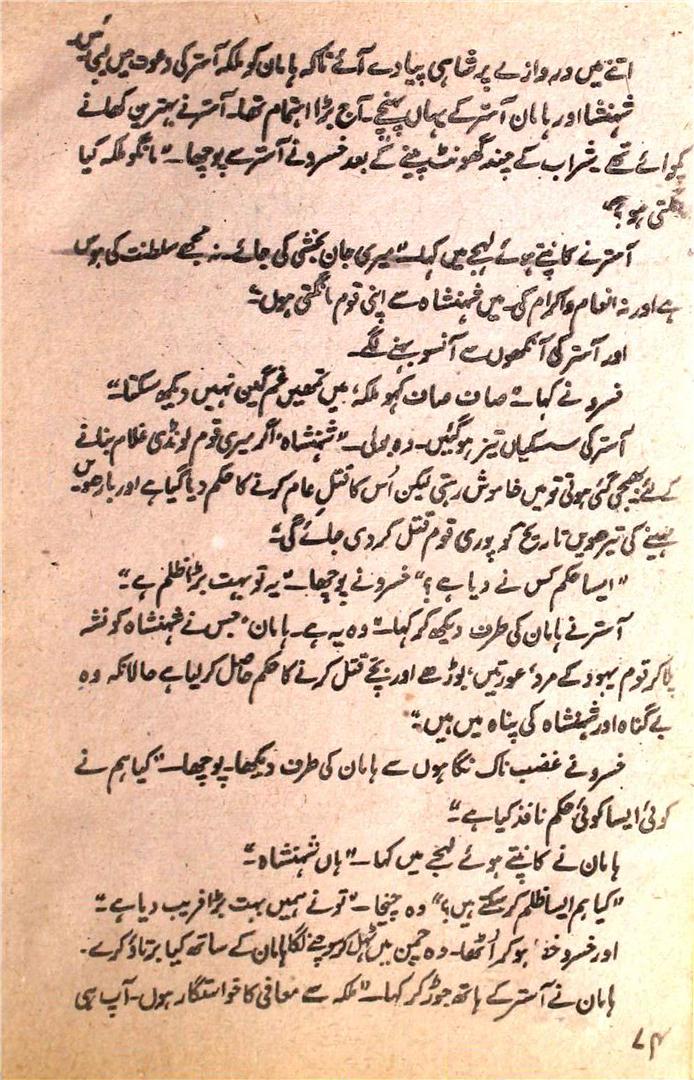 اتنے میں دروازے پر شاہی پیادے آئے تاکہ ہامان کو ملکہ آستر کی دعوت میں لیجائیں
شہنشاہ اور ہامان آستر کے یہاں پہنچے۔ آج بڑا اہتمام تھا۔ آستر نے بہترین کھانے
پکوائے تھے شراب کے چند گھونٹ پینے کے بعد خسرو نے آستر سے پوچھا۔ "مانگو ملکہ کیا
مانگتی ہو؟"
آستر نے کانپتے ہوئے لہجے میں کہا۔ "میری جان بخشی کی جائے۔ نہ مجھے سلطنت کی ہوس
ہے اور نہ انعام و اکرام کی۔ میں شہنشاہ سے اپنی قوم مانگتی ہوں۔"
اور آستر کی آنکھوں سے آنسو بہنے لگے۔
خسرو نے کہا۔ "صاف صاف کہو ملکہ، میں تمھیں غم گین نہیں دیکھ سکتا۔"
آستر کی سسکیاں تیز ہوگئیں۔ وہ بولی۔ "شہنشاہ اگر میری قوم لونڈی غلام بنانے
کے لئے بھیجی گئی ہوتی تو میں خاموش رہتی لیکن اُس کا قتلِ عام کرنے کا حکم دیا گیا ہے اور بارھویں
مہینے کی تیرھویں تاریخ کو پوری قوم قتل کر دی جائے گی۔"
"ایسا حکم کس نے دیا ہے؟" خسرو نے پوچھا۔ "یہ تو بہت بڑا ظلم ہے۔"
آستر نے ہامان کی طرف دیکھ کر کہا۔ "وہ یہ ہے۔ ہامان، جس نے شہنشاہ کو نشہ
پلا کر قوم یہود کے مرد، عورتیں، بوڑھے اور بچے قتل کرنے کا حکم حاصل کر لیا ہے حالانکہ وہ
بے گناہ اور شہنشاہ کی پناہ میں ہیں۔"
خسرو نے غضب ناک نگاہوں سے ہامان کی طرف دیکھا۔ پوچھا۔ "کیا ہم نے
کوئی ایسا کوئی حکم نافذ کیا ہے۔"
ہامان نے کانپتے ہوئے لہجے میں کہا۔ "ہاں شہنشاہ۔"
"کیا ہم ایسا ظلم کر سکتے ہیں؟" وہ چیخا۔ "تو نے ہمیں بہت بڑا فریب دیا ہے۔"
اور خسرو خفا ہو کر اُٹھا۔ وہ چمن میں ٹہل کر سوچنے لگا ہامان کے ساتھ کیا برتاؤ کرے۔
ہامان نے آستر کے ہاتھ جوڑ کر کہا۔ "ملکہ سے معافی کا خواستگار ہوں۔ آپ ہی
۷۴